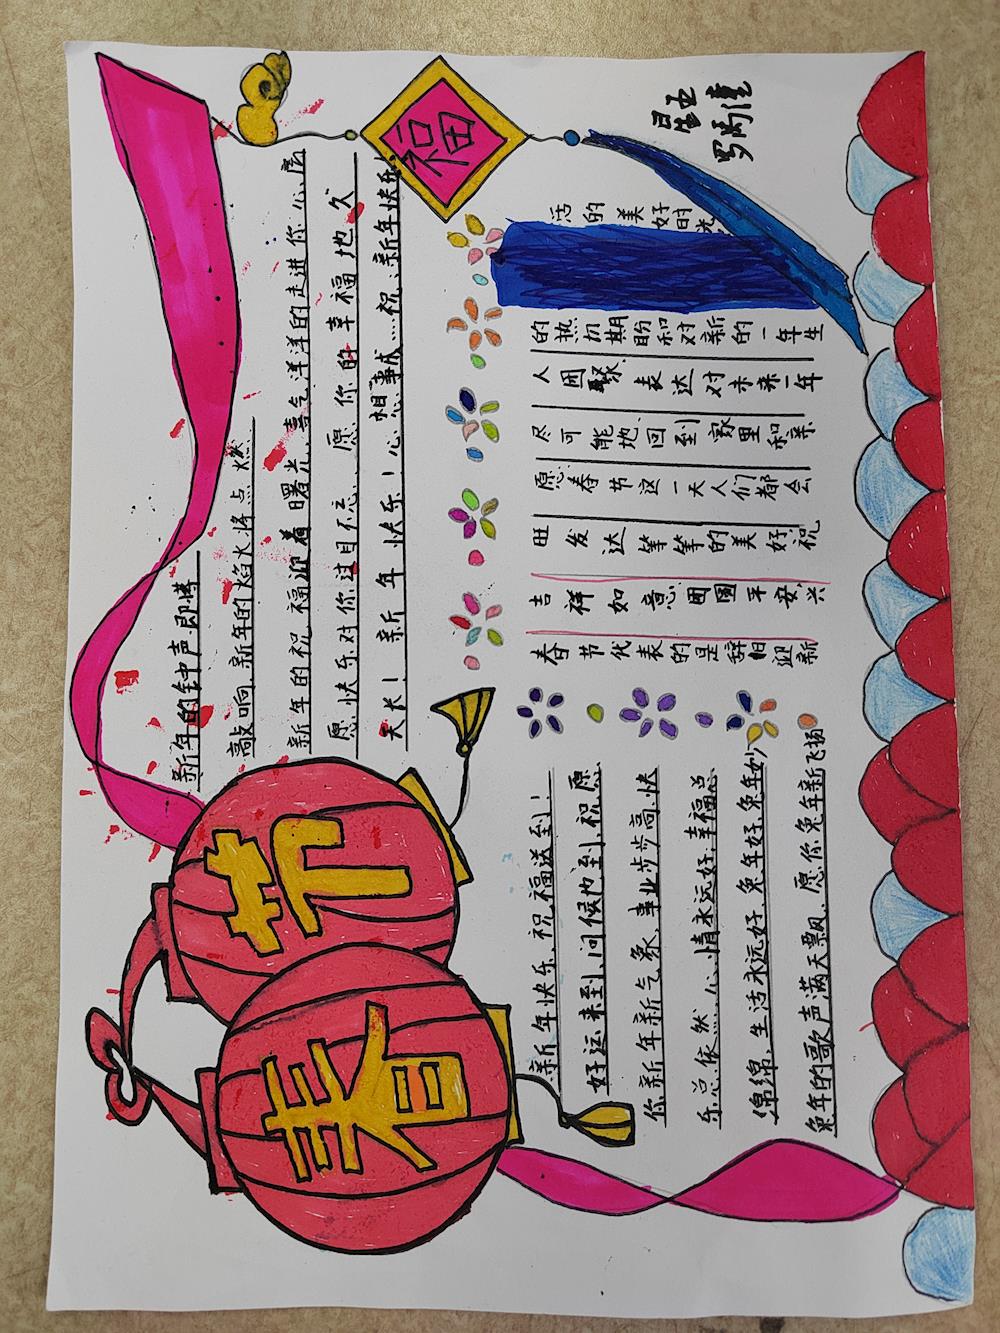 春节
福
新年的钟声即将
敲响,新年的焰火将点燃
新年的祝福迎着曙光,喜气洋洋的走进你心房
愿快乐对你过目不忘、愿你的幸福地久
天长!新年快乐!心想事成.祝:新年快乐
新年快乐,祝福送到!
好运来到,问候也到,祝愿
你新年新气象,事业步步高,快
乐总依然,心情永远好,幸福总
绵绵,生活永远好,兔年好,兔年妙
兔年的歌声满天飘、愿你兔年新飞扬
春节代表的是辞旧迎新
吉祥如意团圆平安兴
旺发达等等的美好祝
愿春节这一天人们都会
尽可能地回到家里和亲
人团聚、表达对未来一年
的热切期盼和对新的一年生
活的美好时光